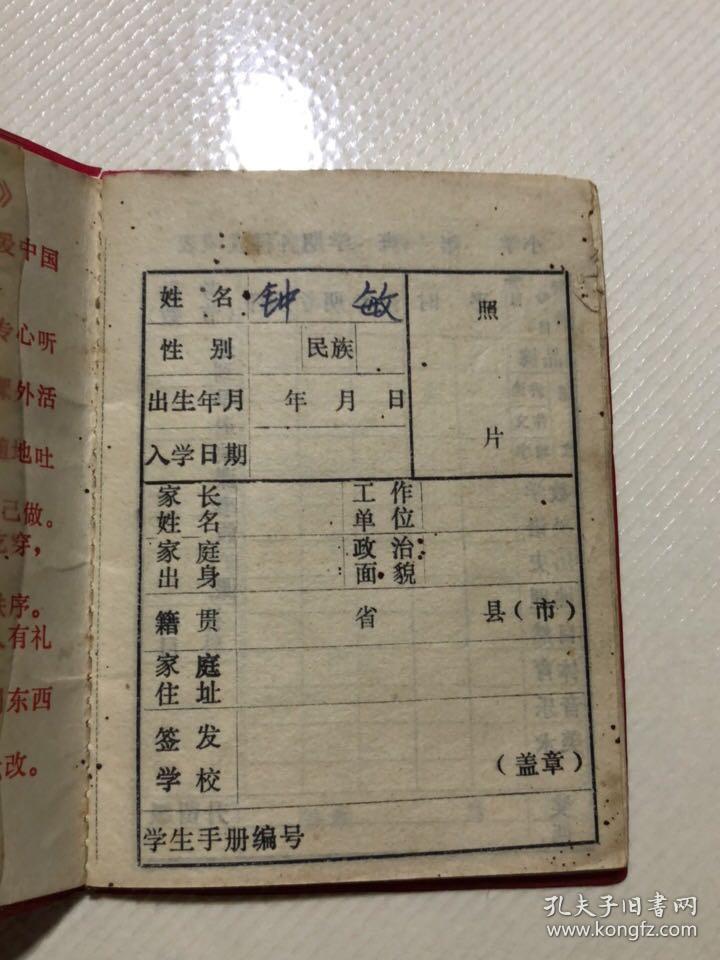 》
爱中国
专心听
课外活
随地吐
己做。
吃穿，
秩序。
人有礼
东西
改。
姓 名 钟 敏
性 别 民族
照 片
出生年月 年 月 日
入学日期
家长姓名 工作单位
家庭出身 政治面貌
籍 贯 省 县（市）
家庭住址
签发学校 （盖章）
学生手册编号
孔夫子旧书网
www.kongfz.com